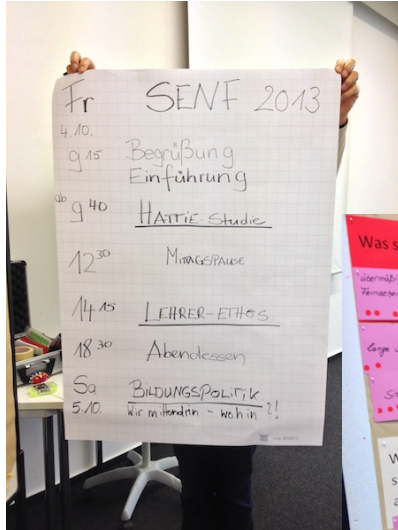 Fr SENF 2013
4.10.
9 15 Begrüßung
Einführung
ab 9 40 HATTIE-Studie
12 30 MITAGSPAUSE
14 15 LEHRER-ETHOS
18 30 Abendessen
Sa BILDUNGSPOLITIK
5.10. Wir mittendrin - wohin?!
Was s
übermäßi
Fernsehen
Lange
Si
W
s